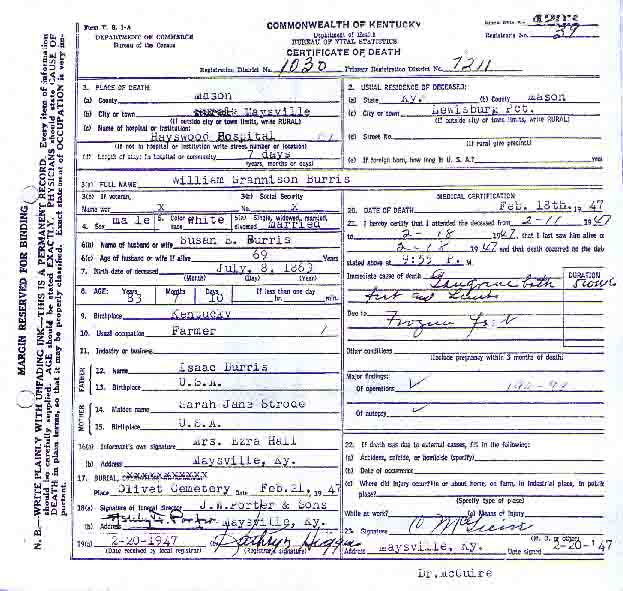 Form V. S. 1-A
COMMONWEALTH OF KENTUCKY
DEPARTMENT OF COMMERCE
Bureau of the Census
Department of Health
BUREAU OF VITAL STATISTICS
CERTIFICATE OF DEATH
Registrar's No. 39
Registration District No. 1030 Primary Registration District No. 7211
MARGIN RESERVED FOR BINDING
N. B.—WRITE PLAINLY WITH UNFADING INK—THIS IS A PERMANENT RECORD. Every item of information
should be carefully supplied. AGE should be stated EXACTLY. PHYSICIANS should state CAUSE OF
DEATH in plain terms, so that it may be properly classified. Exact statement of OCCUPATION is very important.
1. PLACE OF DEATH:
(a) County Mason
(b) City or town Maysville
(If outside city or town limits, write RURAL)
(c) Name of hospital or institution:
Hayswood Hospital
(If not in hospital or institution write street number or location)
Length of stay: in hospital or community 7 days
(years, months or days)
2. USUAL RESIDENCE OF DECEASED:
(a) State Ky. (b) County Mason
(c) City or town Lewisburg Pct.
(If outside city or town limits, write RURAL)
(d) Street No.
(If rural give precinct)
(e) If foreign born, how long in U. S. A.? years
3(a) FULL NAME William Grannison Burris
3(b) If veteran,
Name war x
3(c) Social Security
No. x
4. Sex male 5. Color race White 6(a) Single, widowed, married, divorced married
6(b) Name of husband or wife Susan E. Burris
6(c) Age of husband or wife if alive 69 Years
7. Birth date of deceased July, 8, 1863
(Month) (Day) (Year)
8. AGE: Years 83 Months 7 Days 10 If less than one day
hr. min.
9. Birthplace Kentucky
10. Usual occupation Farmer
11. Industry or business
FATHER
12. Name Isaac Burris
13. Birthplace U.S.A.
MOTHER
14. Maiden name Sarah Jane Strode
15. Birthplace U.S.A.
16(a) Informant's own signature Mrs. Ezra Hall
(b) Address Maysville, Ky.
17. BURIAL,
Place Olivet Cemetery Date Feb.21, 1947
18(a) Signature of funeral director J.W.Porter & Sons
(b) Address Maysville, Ky.
19(a) 2-20-1947 (b) Kathryn
(Date received by local registrar) (Registrar's signature)
MEDICAL CERTIFICATION
20. DATE OF DEATH Feb. 18th. 1947
21. I hereby certify that I attended the deceased from 2-11 1947
to 2-18 1947, that I last saw him alive on
2-18 1947 and that death occurred on the date
stated above at 9:55 P. M.
Immediate cause of death Gangrene both
feet and
DURATION
Due to Frozen feet
Other conditions
(Include pregnancy within 3 months of death)
Major findings:
Of operations
Of autopsy
22. If death was due to external causes, fill in the following:
(a) Accident, suicide, or homicide (specify)
(b) Date of occurrence
(c) Where did injury occur in or about home, on farm, in industrial place, in public
place?
(Specify type of place)
While at work? (e) Means of Injury
23. Signature McGuire
(M. D. or other)
Address Maysville, Ky. Date signed 2-20-'47
Dr.McGuire